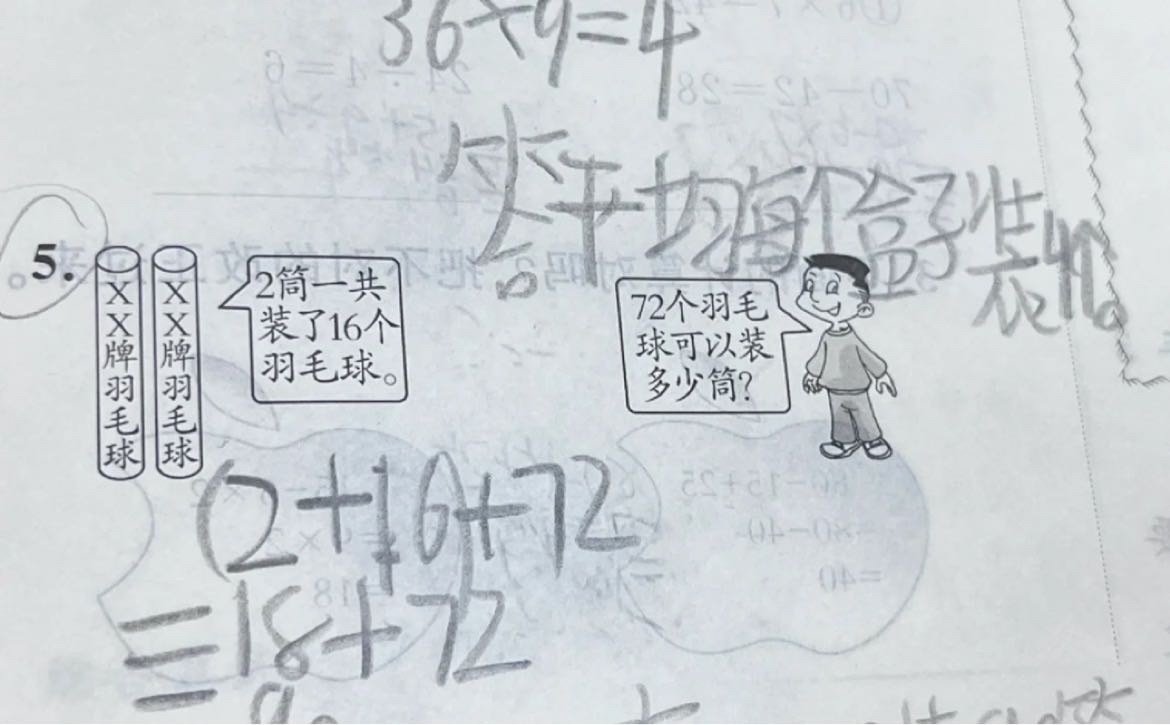 36÷9=4
答:平均每个盒子装4个。
5.
XX牌羽毛球
XX牌羽毛球
2筒一共
装了16个
羽毛球。
72个羽毛
球可以装
多少筒?
(2+16)+72
=18+72